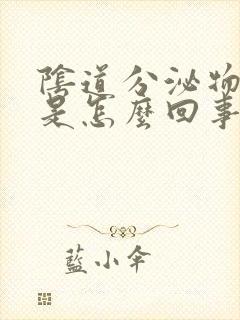 陰道分泌物
是怎麼回事
藍小傘